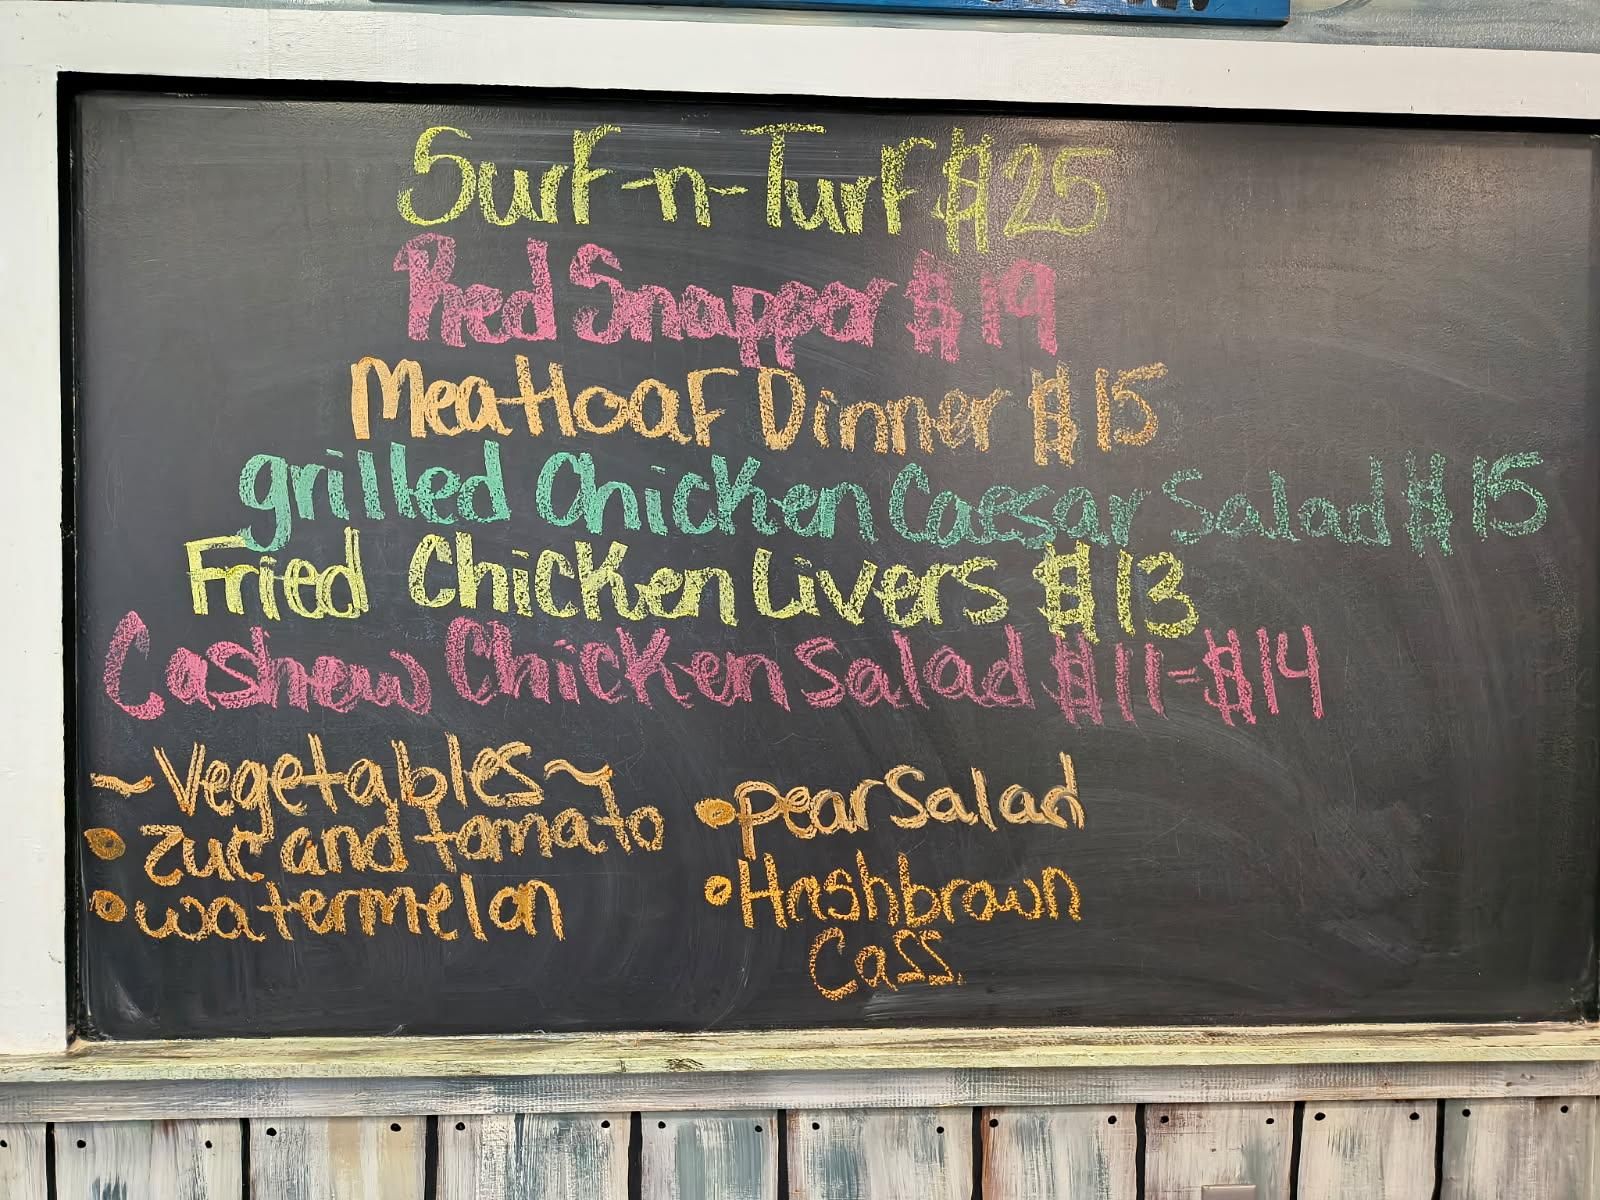 Surf-n-Turf $25
Red Snapper $19
Meatloaf Dinner $15
grilled Chicken Caesar Salad $15
Fried Chicken Livers $13
Cashew Chicken Salad $11-$14
~Vegetables~
• zuc and tomato
• watermelon
• pear Salad
• Hashbrown
Cass.